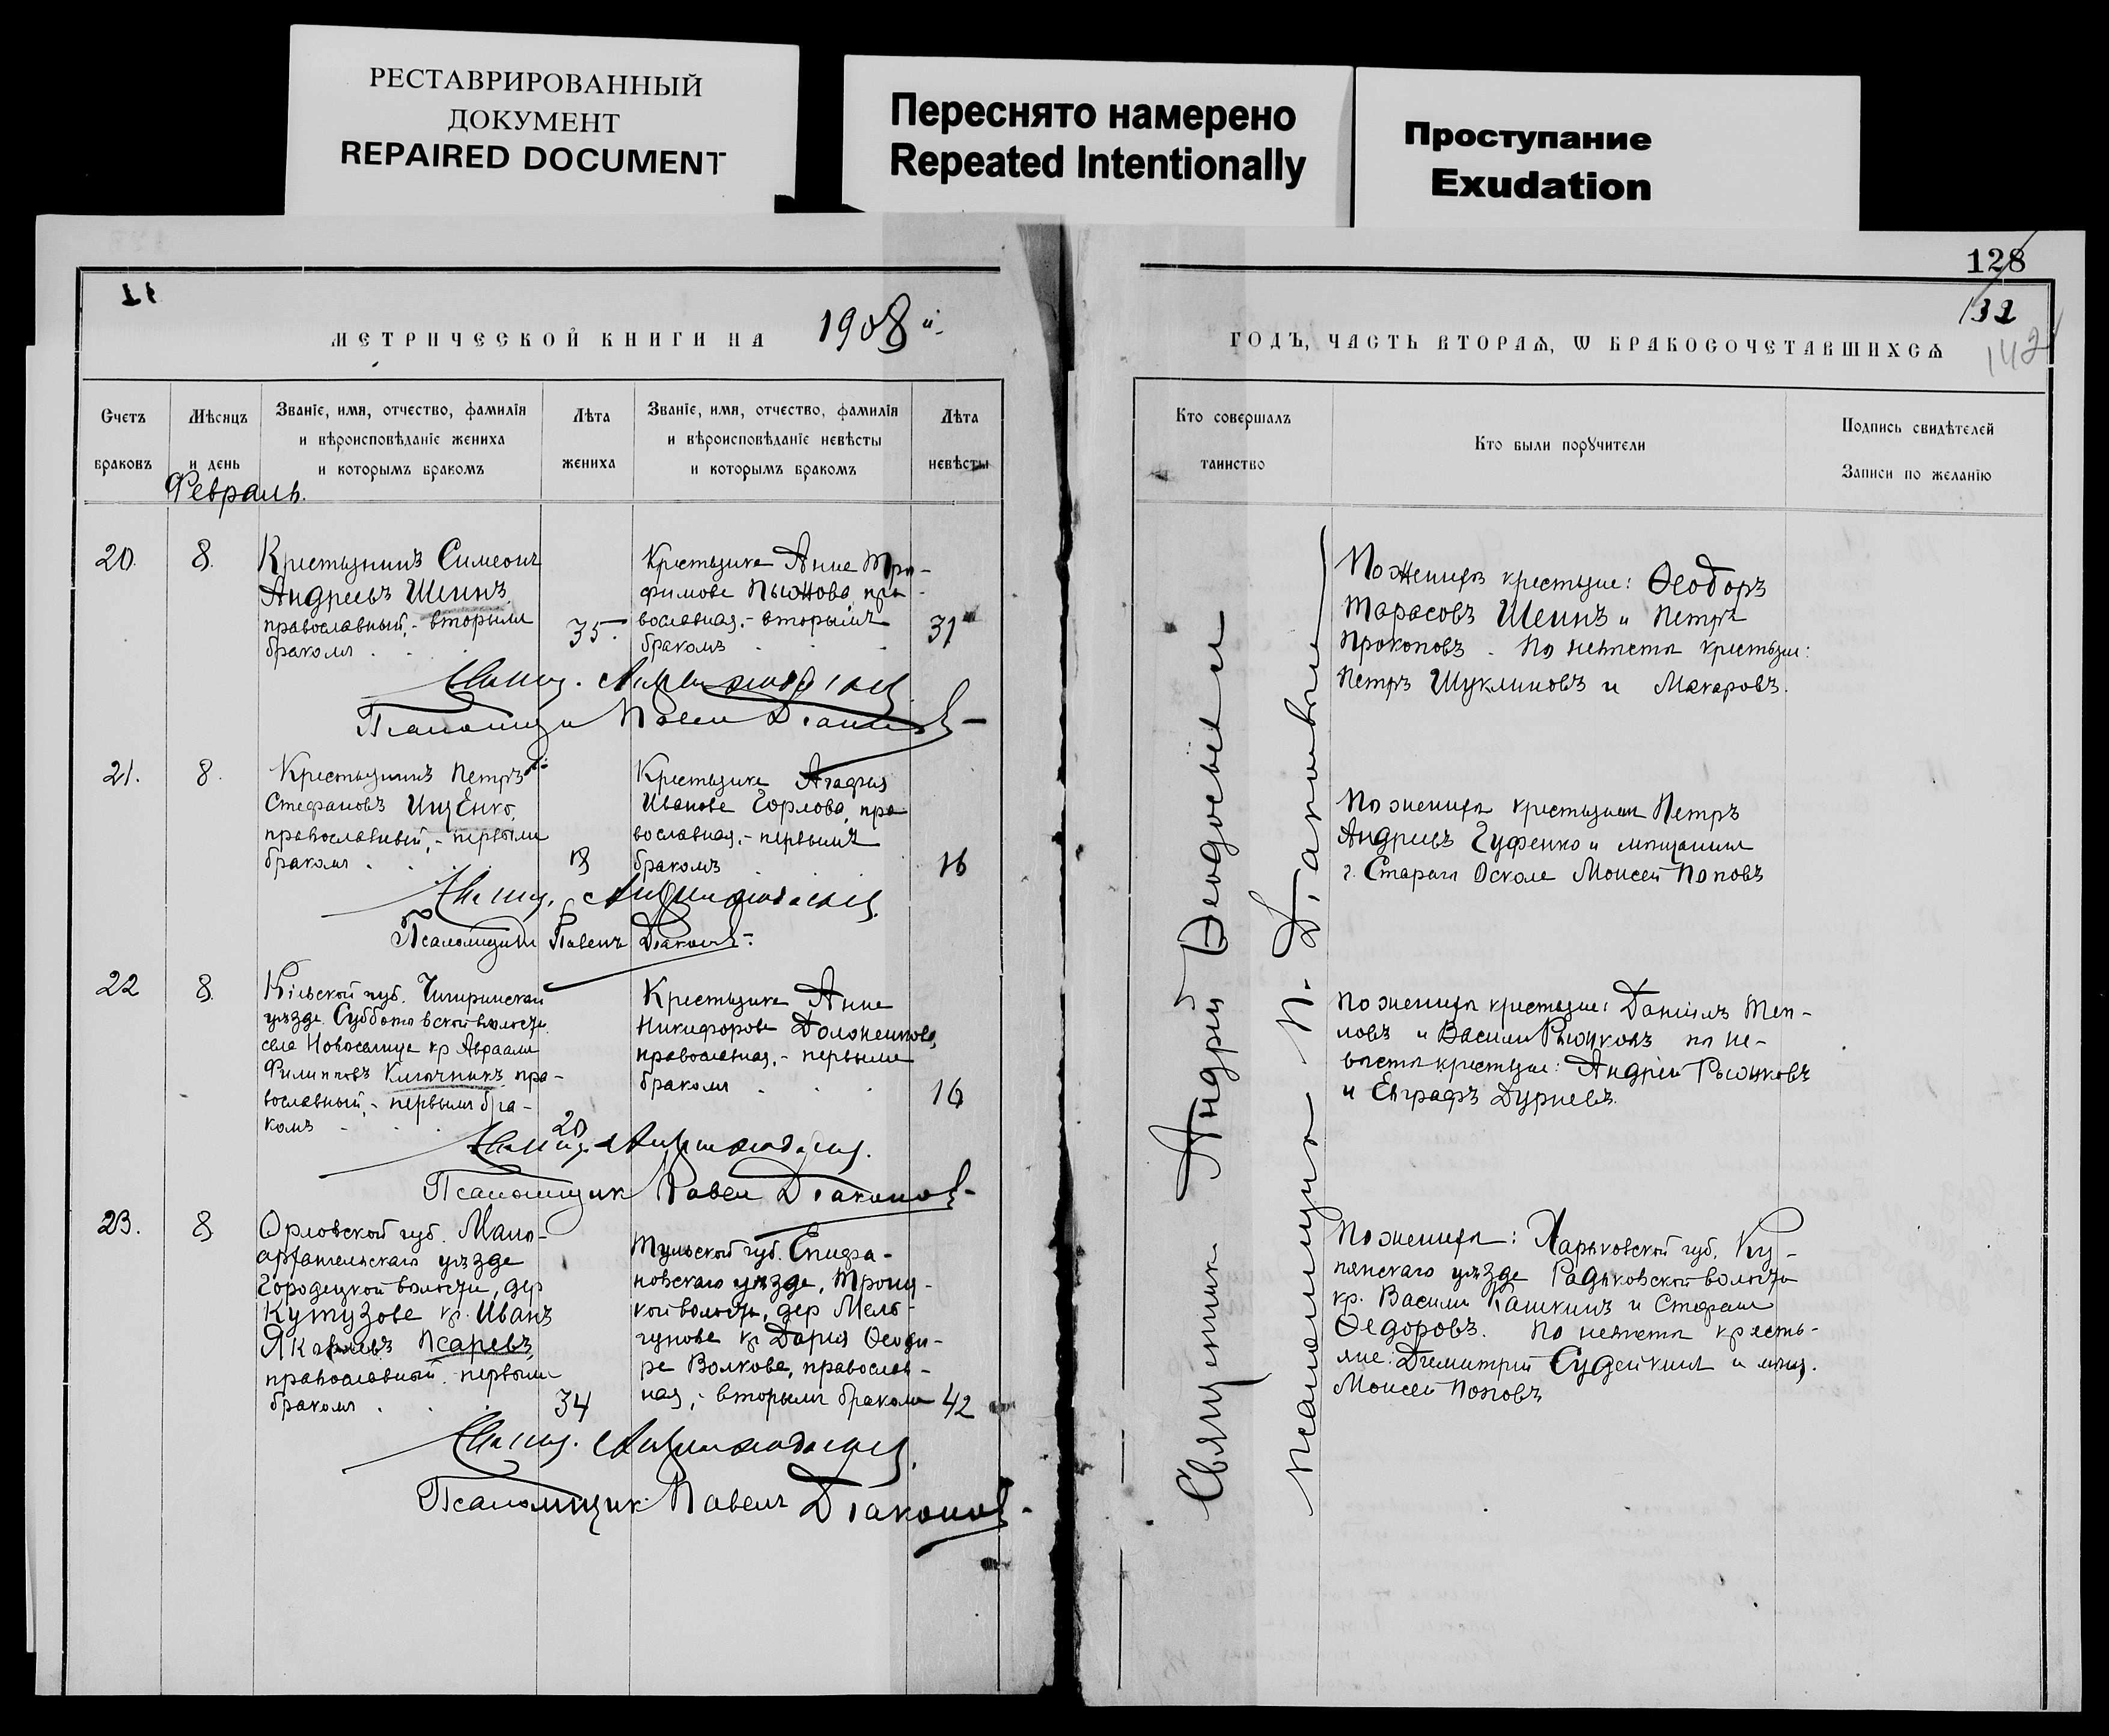 РЕСТАВРИРОВАННЫЙ
ДОКУМЕНТ
REPAIRED DOCUMENT
Переснято намерено
Repeated Intentionally
Проступание
Exudation
11
МЕТРИЧЕСКОЙ КНИГИ НА 1908 й
Счетъ
браковъ
Мѣсяцъ
и день
Званіе, имя, отчество, фамилія
и вѣроисповѣданіе жениха
и которымъ бракомъ
Лѣта
жениха
Званіе, имя, отчество, фамилія
и вѣроисповѣданіе невѣсты
и которымъ бракомъ
Лѣта
невѣсты
Февраль.
20. 8.
Крестьянинъ Симеонъ
Андреевъ Шеинъ,
православный, - вторымъ
бракомъ
35.
Крестьянка Анна Тро-
фимова Пыжова, пра-
вославная. - вторымъ
бракомъ
31
Псаломщикъ Павелъ Діаконовъ
21. 8.
Крестьянинъ Петръ
Стефановъ Ищенко,
православный, - первымъ
бракомъ
18
Крестьянка Агафія
Иванова Горлова, пра-
вославная, - первымъ
бракомъ
16
Псаломщикъ Павелъ Діаконовъ
22 8.
Кіевской губ. Чигиринскаго
уѣзда Субботовской волости
села Новоселица кр Авраамъ
Филипповъ Ключникъ, пра-
вославный, - первымъ бра-
комъ
20
Крестьянка Анна
Никифорова Долженкова,
православная, - первымъ
бракомъ
16
Псаломщикъ Павелъ Діаконовъ
23. 8
Орловской губ. Мало-
архангельскаго уѣзда
Городецкой волости, дер
Кутузова кр. Иванъ
Яковлевъ Псаревъ,
православный. первымъ
бракомъ
34
Тульской губ. Епифа-
новскаго уѣзда, Троиц-
кой волости, дер Мель-
гунова кр Дарія Ѳеодо-
ра Волкова, православ-
ная, - вторымъ бракомъ
42
Псаломщикъ Павелъ Діаконовъ
128
132
142
ГОДЪ, ЧАСТЬ ВТОРАЯ, Ѡ БРАКОСОЧЕТАВШИХСЯ
Кто совершалъ
таинство
Кто были поручители
Подпись свидѣтелей
Записи по желанію
Священникъ Андрей Ѳеодосьевъ
Псаломщикъ П. Діаконовъ
По женихѣ крестьяне: Ѳеодоръ
Тарасовъ Шеинъ и Петръ
Прокоповъ. По невѣстѣ крестьяне:
Петръ Шуклиновъ и Макаровъ.
По женихѣ крестьянинъ Петръ
Андреевъ Гуфенко и мѣщанинъ
г. Стараго Оскола Моисей Поповъ
По женихѣ крестьяне: Даніилъ Теп-
ловъ и Василій Рыжковъ по не-
вѣстѣ крестьяне: Андрей Рыжковъ
и Евграфъ Дурневъ.
По женихѣ: Харьковской губ. Ку-
пянскаго уѣзда Радьковской волости
кр. Василій Кашкинъ и Стефанъ
Ѳедоровъ. По невѣстѣ кресть-
яне: Димитрій Судейкинъ и мѣщ.
Моисей Поповъ